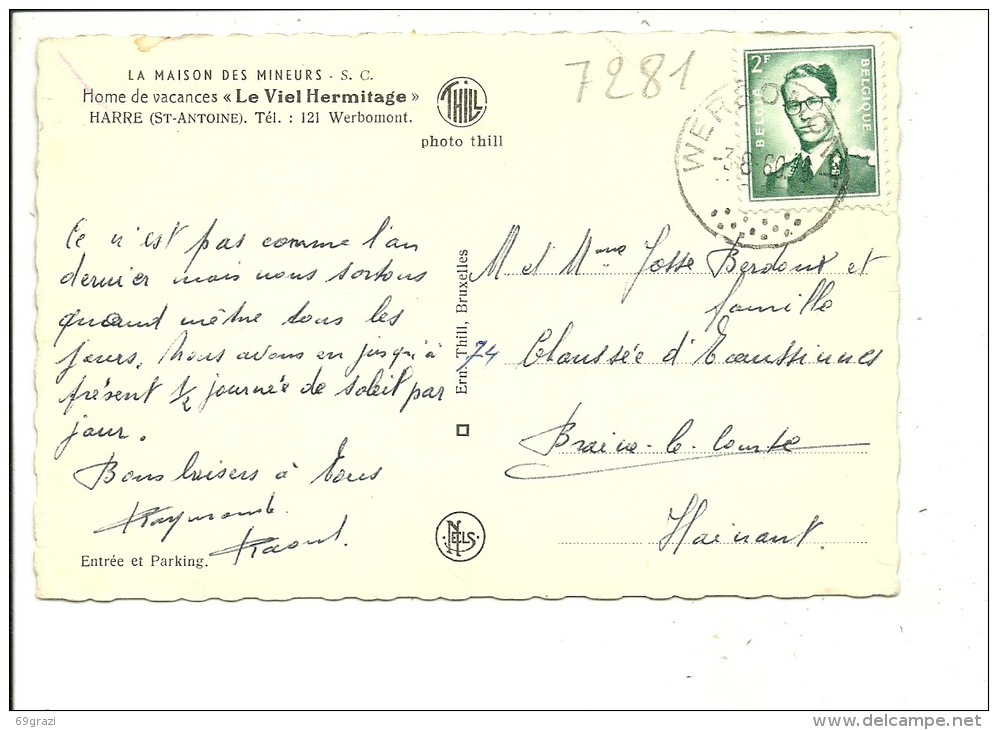 LA MAISON DES MINEURS - S. C.
Home de vacances « Le Viel Hermitage »
HARRE (ST-ANTOINE). Tél. : 121 Werbomont.
THILL
photo thill
7281
2F
BELGIE BELGIQUE
WERBOMONT
-8-60
Ce n'est pas comme l'an
dernier mais nous sortons
quand même tous les
jours. Nous avons eu jusqu'à
présent ½ journée de soleil par
jour.
Bons baisers à tous
Raymonde
Raoul.
Entrée et Parking.
Ern. Thill, Bruxelles
NELS
M et Mme Josse Berdoux et
famille
74 Chaussée d'Ecaussinnes
Braine-le-Comte
Hainaut.
69grazi
delcampe.net